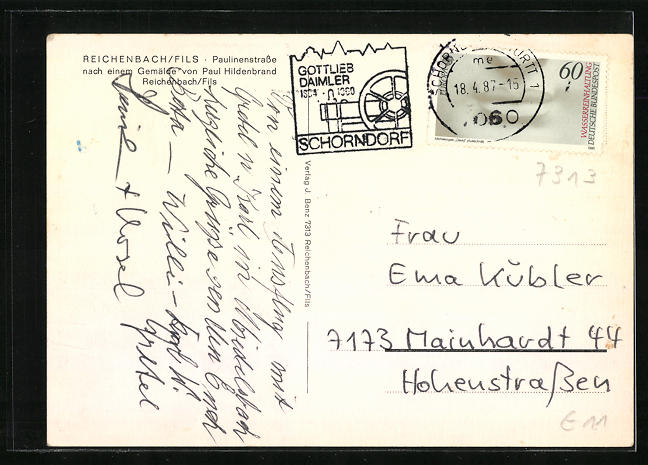 REICHENBACH/FILS · Paulinenstraße
nach einem Gemälde von Paul Hildenbrand
Reichenbach/Fils
GOTTLIEB
DAIMLER
1834 - 1900
SCHORNDORF
SCHORNDORF, WÜRTT 1
me
18.4.87-15
7060
60
WASSERREINHALTUNG
DEUTSCHE BUNDESPOST
7313
Verlag J. Benz 7313 Reichenbach/Fils
Von einem Ausflug mit
in
herzliche Grüße senden Euch
Willi -
+ Gretel
Frau
Ema Kübler
7173 Mainhardt 44
Hohenstraßen
E 11